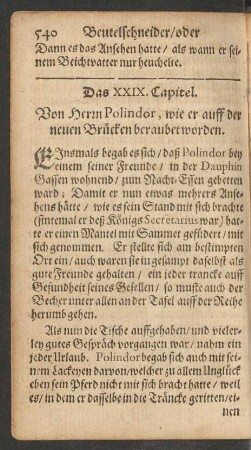 540 Beutelschneider/oder
Dann es das Ansehen hatte / als wann er sei-
nem Beichtvatter nur heuchelte.
Das XXIX. Capitel.
Von Herrn Polindor, wie er auff der
neuen Brücken beraubet worden.
EInsmals begab es sich / daß Polindor bey
einem seiner Freunde / in der Dauphin
Gassen wohnend / zum Nacht-Essen gebetten
ward; Damit er nun etwas mehrers Anse-
hens hätte / wie es sein Stand mit sich brachte
(sintemal er deß Königs Secretarius war) hat-
te er einen Mantel mit Sammet gefüdert / mit
sich genommen. Er stellte sich am bestimpten
Ort ein / auch waren sie in gesampt daselbst als
gute Freunde gehalten / ein jeder trancke auff
Gesundheit seines Gesellen / so muste auch der
Becher unter allen an der Tafel auff der Reihe
herumb gehen.
Als nun die Tische auffgehaben / und vieler-
ley gutes Gespräch vorgangen war / nahm ein
jeder Urlaub. Polindor begab sich auch mit sei-
nem Lackeyen darvon / welcher zu allem Unglück
eben sein Pferd nicht mit sich bracht hatte / weil
es / in dem er dasselbe in die Träncke geritten / ei-
nen